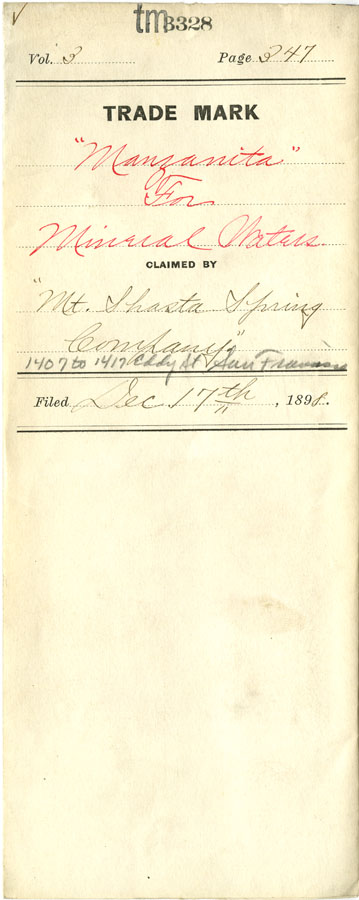 tm 3328
Vol. 3 Page 347
TRADE MARK
"Manzanita"
For
Mineral Waters
CLAIMED BY
"Mt. Shasta Spring
Company"
1407 to 1417 Eddy St San Francisco
Filed Dec 17th, 1898.